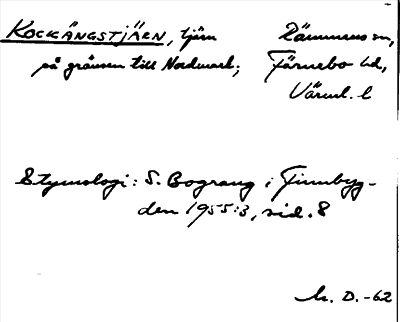 KOCKÄNGSTJÄRN, tjärn
på gränsen till Nordmark;
Rämmens sn,
Färnebo hd,
Värml. l
Etymologi: S. Bograng i Finnbyg-
den 1955:3, sid. 8
h. D. -62